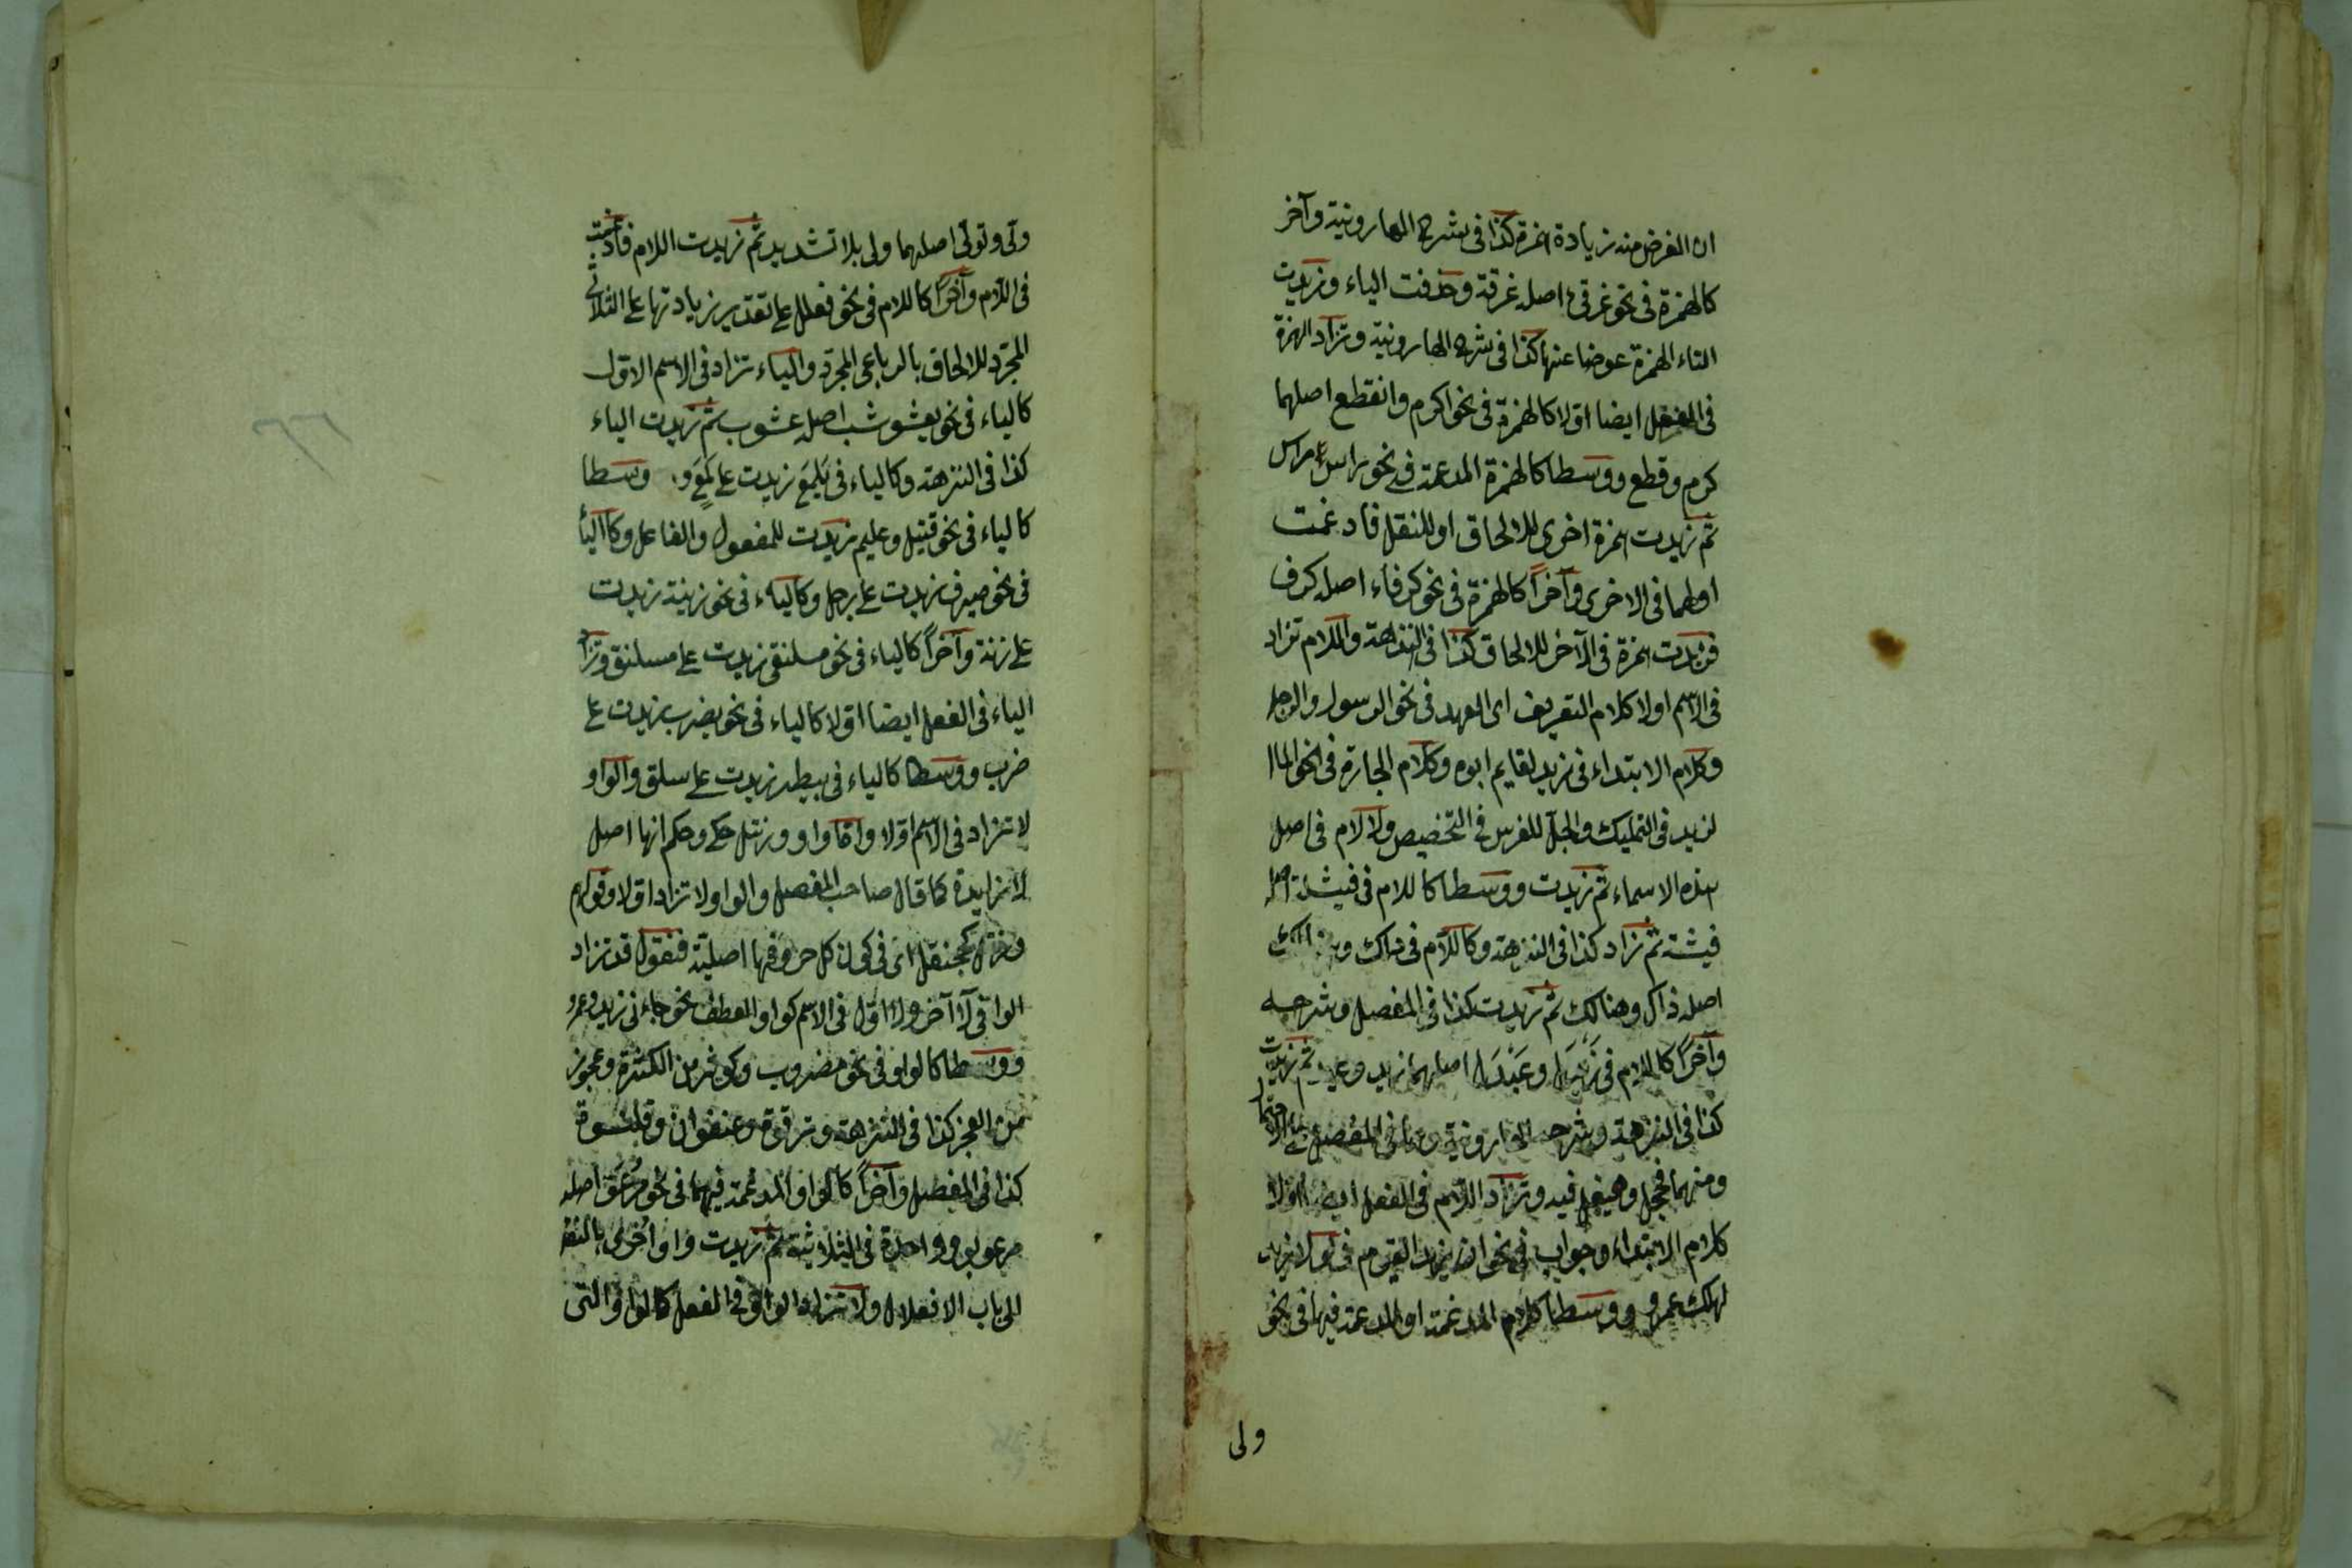 ان الغرض منه زيادة همزة كذا فى شرح الهارونية وآخر
كالهمزة فى نحو غرقئ اصله غرقة وحذفت الياء وزيدت
التاء الهمزة عوضا عنها كذا فى شرح الهارونية وتزاد الهمزة
فى الفعل ايضا اولا كالهمزة فى نحو اكرم وانقطع اصلهما
كرم وقطع ووسطا كالهمزة المدغمة فى نحو رأس على راس
ثم زيدت همزة اخرى للالحاق او للنقل فادغمت
اولهما فى الاخرى وآخرًا كالهمزة فى نحو كرفاء اصله كرف
فزيدت همزة فى الآخر للالحاق كذا فى النزهة واللام تزاد
فى الاسم اولا كلام التعريف اى العهد فى نحو الرسول والرجل
وكلام الابتداء فى زيد لقايم ابوه وكلام الجارة فى نحو المال
لزيد فى التمليك والجل للفرس فى التخصيص ولا لام فى اصل
هذه الاسماء ثم زيدت ووسطا كاللام فى فيشلة اصله
فيشة ثم تزاد كذا فى النزهة وكاللام فى ذلك و
اصله ذاك وهنالك ثم زيدت كذا فى المفصل وشرحه
وآخرًا كاللام فى زَيْدَل وعَبْدَل اصلهما زيد وعبد ثم زيدت
كذا فى النزهة وشرح الهارونية وما فى المفصل
ومنهما فحجل وهيقل فيه وتزاد اللام فى الفعل ايضا اولا
كلام الابتداء وجواب فى نحو ان زيدا ليقوم فى لولا زيد
لهلك عمرو ووسطا كلام المدغمة او المدغمة فيها فى نحو
ولى
ولى وتولى اصلهما ولى بلا تشديد ثم زيدت اللام فادغمت
فى اللام وآخرًا كاللام فى نحو فعلل على تقدير زيادتها على الثلاثى
المجرد للالحاق بالرباعى المجرد والياء تزاد فى الاسم الاول
كالياء فى نحو يعشوشب اصله عشوب ثم زيدت الياء
كذا فى النزهة وكالياء فى يَلْمَع زيدت على لَمَع و وسطا
كالياء فى نحو قتيل وعليم زيدت للمفعول والفاعل وكالياء
فى نحو صيرف زيدت على رجل وكالياء فى نحو زنية زيدت
على زنة وآخرًا كالياء فى نحو مسلنقى زيدت على مسلنق وتزاد
الياء فى الفعل ايضا اولا كالياء فى نحو يضرب زيدت على
ضرب ووسطا كالياء فى بيطر زيدت على سلق والواو
لا تزاد فى الاسم اولا واما واو ورنتل حكى وحكم انها اصل
لا زايدة كما قال صاحب المفصل والواو لا تزاد اولا وقولهم
ورنتل كجحنفل اى فى كون كل حروفها اصلية فنقول قد تزاد
الواو فى لا آخر ولا اول فى الاسم كواو العطف نحو جاءنى زيد وعمرو
ووسطا كالواو فى نحو مضروب وكوثر من الكثرة وعجوز
من العجز كذا فى النزهة وترقوة وعنفوان وقلنسوة
كذا فى المفصل وآخرًا كالواو المدغمة فيها فى نحو مرعو اصله
مرعو بواو واحدة فى الثلاثية ثم زيدت واو اخرى بالنقل
الى باب الافعلال ولا تزاد الواو فى الفعل كالواو التى